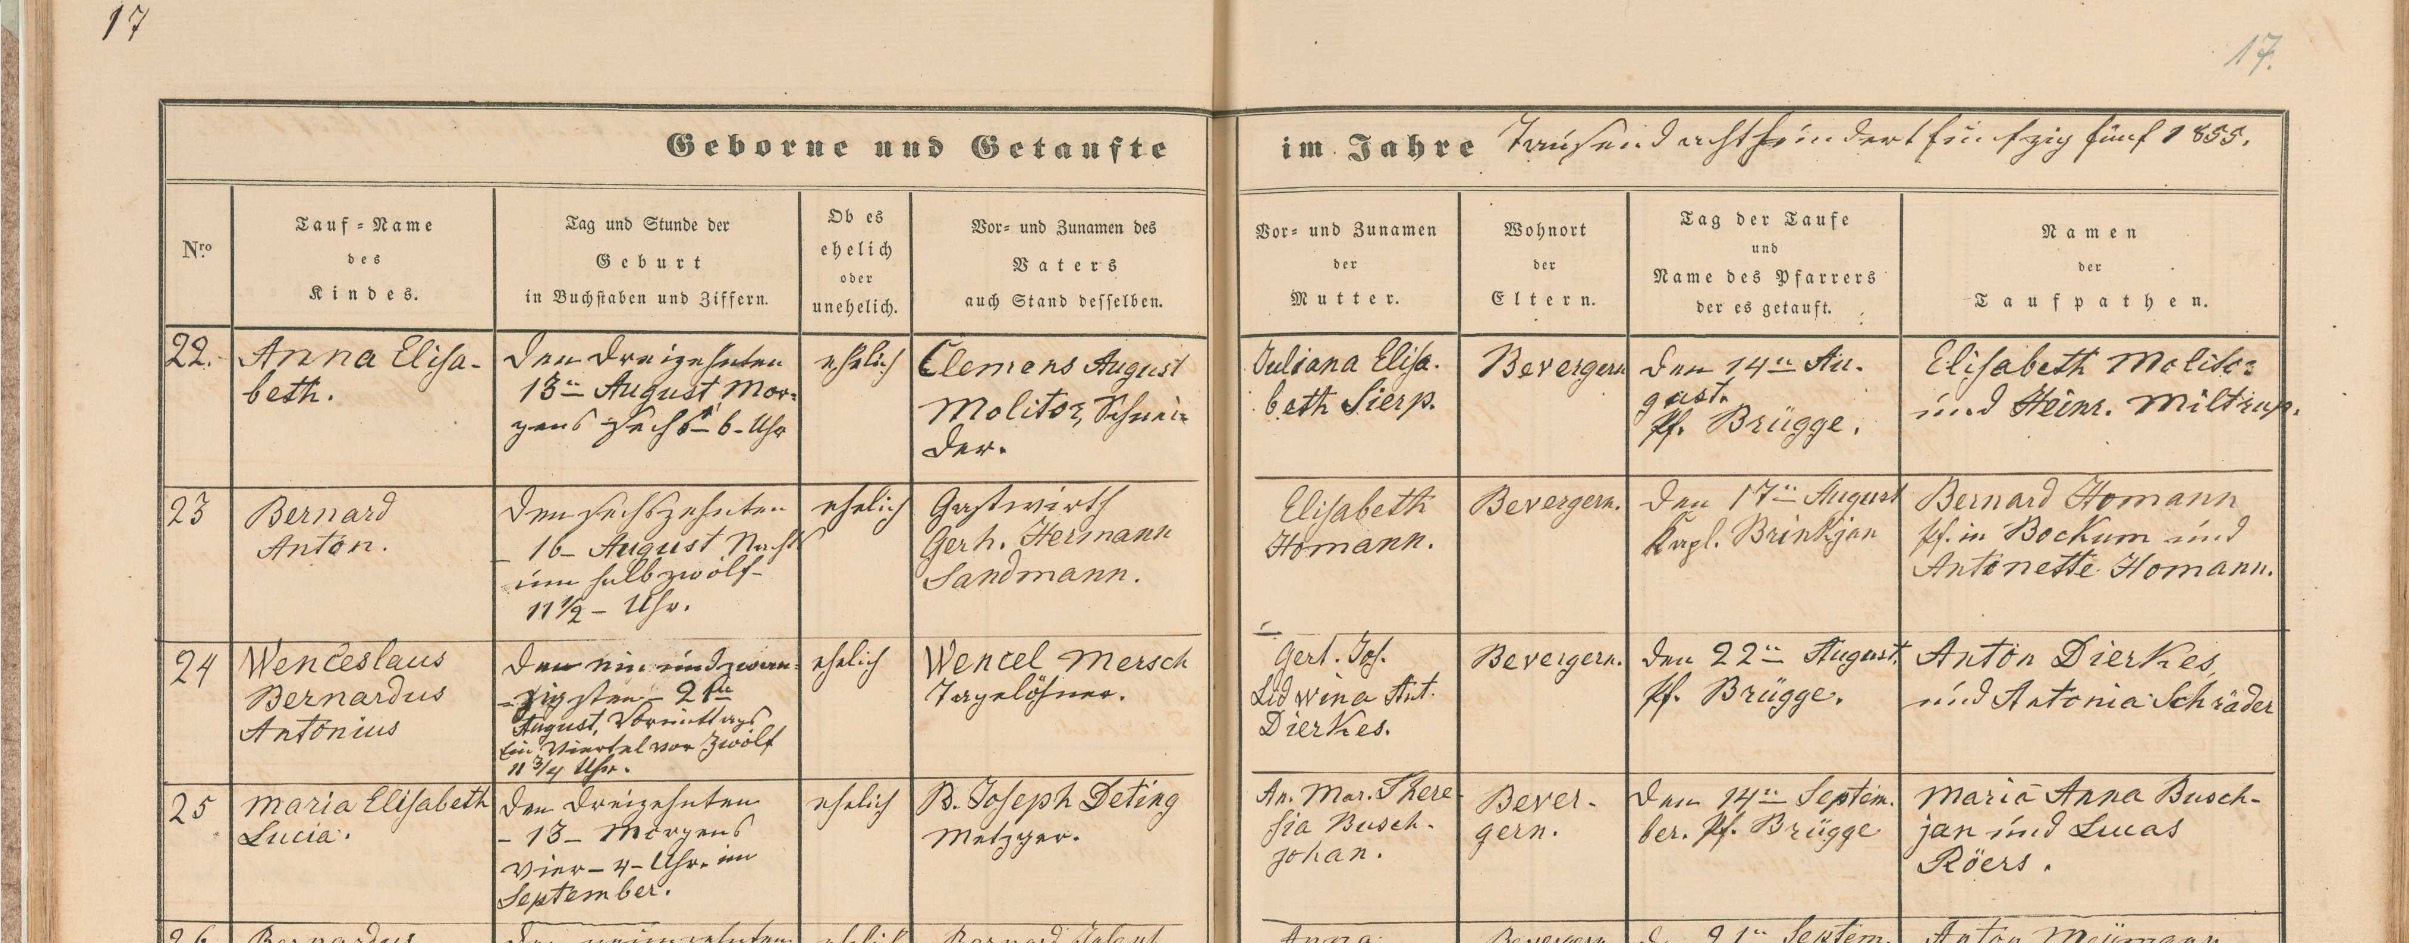 17
17.
Geborne und Getaufte im Jahre Tausend achthundert fünfzig fünf 1855.
Nro
Tauf-Name
des
Kindes.
Tag und Stunde der
Geburt
in Buchstaben und Ziffern.
Ob es
ehelich
oder
unehelich.
Vor- und Zunamen des
Vaters
auch Stand desselben.
Vor- und Zunamen
der
Mutter.
Wohnort
der
Eltern.
Tag der Taufe
und
Name des Pfarrers
der es getauft.
Namen
der
Taufpathen.
22.
Anna Elisa-
beth.
Den dreizehnten
13ten August Mor-
gens sechs - 6 - Uhr
ehelich
Clemens August
Molitor, Schnei-
der.
Juliana Elisa-
beth Sierp.
Bevergern
Den 14ten Au-
gust.
Pf. Brügge.
Elisabeth Molitor
und Heinr. Miltrup.
23
Bernard
Anton.
Den sechszehnten
- 16 - August Nachts
um halbzwölf -
11 1/2 - Uhr.
ehelich
Gastwirth
Gerh. Hermann
Sandmann.
Elisabeth
Homann.
Bevergern.
Den 17ten August
Kapl. Brinkjan
Bernard Homann
Pf. in Bockum und
Antonette Homann.
24
Wenceslaus
Bernardus
Antonius
Den ein und zwan-
zigsten - 21ten
August, Vormittags
Ein Viertel vor Zwölf
11 3/4 Uhr.
ehelich
Wencel Mersch
Tagelöhner.
Gert. Jos.
Lidwina Ant.
Dierkes.
Bevergern.
Den 22ten August.
Pf. Brügge.
Anton Dierkes,
und Antonia Schräder
25
Maria Elisabeth
Lucia.
Den dreizehnten
- 13 - Morgens
vier - 4 - Uhr. im
September.
ehelich
B. Joseph Deting
Metzger.
An. Mar. There-
sia Busch-
johan.
Bever-
gern.
Den 14ten Septem-
ber. Pf. Brügge
Maria Anna Busch-
jan und Lucas
Röers.
26
Bernardus
Den neunzehnten
ehelich
Bernard
Anna
Bevergern
Den 21ten Septem-
Anton